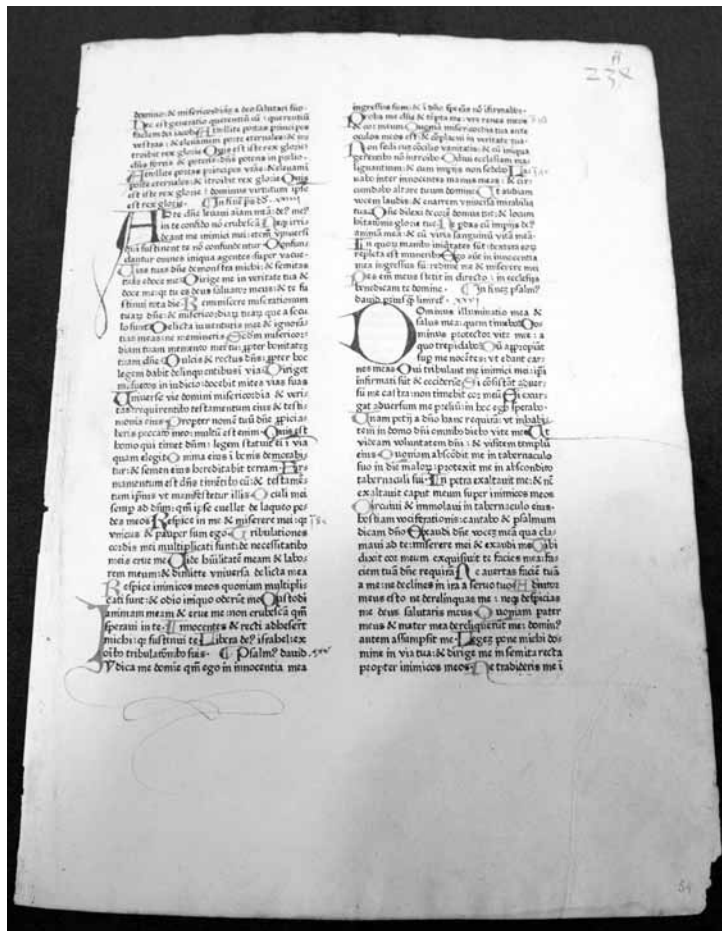 domino: & misericordiā a deo salutari suo.
Hec est generatio querentiū eū: querentiū
faciem dei iacob. Attollite portas principes
vestras: & eleuamini porte eternales: & in
troibit rex glorie. Quis est iste rex glorie:
dn̄s fortis & potens: dn̄s potens in prelio.
Attollite portas principes vr̄as: & eleuami
porte eternales: & ītroibit rex glorie. Quis
est iste rex glorie: dominus virtutum ipse
est rex glorie.
AD te dn̄e leuaui aīam meā: de? me?
in te confido nō erubescā. Neq; irri
deant me inimici mei: etem̄ vniuersi
qui sustinent te nō confundentur. Confun
dantur omnes iniqua agentes: super vacue.
Uias tuas dn̄e demonstra michi: & semitas
tuas edoce me. Dirige me in veritate tua &
doce me: qr tu es deus saluator meus: & te su
stinui tota die. Reminiscere miserationum
tuaꝝ dn̄e: & misericordiaꝝ tuaꝝ que a secu
lo sunt. Delicta iuuētutis mee & ignorā
tias meas: ne memineris. Scd̄m misericor
diam tuam memento mei tu: ꝓpter bonitatē
tuam dn̄e. Dulcis & rectus dn̄s: ꝓpter hoc
legem dabit delinquentibus ī via. Diriget
māsuetos in iudicio: docebit mites vias suas
Uniuerse vie domini misericordia & veri
tas: requirentibꝰ testamentum eius & testi
monia eius. Propter nomē tuū dn̄e ꝓpicia
beris peccato meo: multū est enim. Quis est
homo qui timet dn̄m: legem statuit ei ī via
quam elegit. Anima eius ī bonis demorabi
tur: & semen eius hereditabit terram. Fir
mamentum est dn̄s timētibꝰ eū: & testamē
tum ip̄ius vt manifestetur illis. Oculi mei
semꝑ ad dn̄m: qm̄ ip̄e euellet de laqueo pe
des meos. Respice in me & miserere mei: qr
vnicus & pauper sum ego. Tribulationes
cordis mei multiplicati sunt: de necessitatibꝰ
meis erue me. Uide hūilitatē meam & labo
rem meum: & dimitte vniuersa delicta mea
Respice inimicos meos quoniam multipli
cati sunt: & odio iniquo oderūt me. Custodi
animam meam & erue me: non erubescā qm̄
speraui in te. Innocentes & recti adheserūt
michi: qr sustinui te. Libera de? israhel: ex
oībꝰ tribulatiōnibꝰ suis. Psalm? dauid. xxv
IVdica me domīe qm̄ ego in īnocentia mea
ingressus sum: & ī dn̄o sperās nō īfirmabor.
Proba me dn̄e & tēpta me: vre renes meos
& cor meum. Quoniā misericordia tua ante
oculos meos est: & cōplacui in veritate tua.
Non sedi cū cōcilio vanitatis: & cū iniqua
gerentibꝰ nō introibo. Odiui ecclesiam ma
lignantium: & cum impijs non sedebo. Laua
uabo inter innocentes manus meas: & cir
cumdabo altare tuum domine. Ut audiam
vocem laudis: & enarrem vniuersa mirabilia
tua. Dn̄e dilexi decorē domus tue: & locum
habitatiōnis glorie tue. Ne ꝑdas cū impijs de?
animā meā: & cū viris sanguinū vitā meā.
In quoꝝ manibꝰ iniqtates sūt: dextera eoꝝ
repleta est muneribꝰ. Ego aūt in innocentia
mea ingressus sū: redime me & miserere mei
Pes em̄ meus stetit in directo: in ecclesijs
benedicam te domine. In finē psalm?
dauid priusq̄ liniret. xxvj
DOminus illuminatio mea &
salus mea: quem timebo. Do
minus protector vite mee: a
quo trepidabo. Dū appropiāt
sup me nocētes: vt edant car
nes meas. Qui tribulant me inimici mei: ip̄i
infirmati sūt & ceciderūt. Si cōsistāt aduer
sū me castra: non timebit cor meū. Si exur
gat aduersum me preliū: in hoc ego sperabo.
Unam petij a dn̄o hanc requirā: vt inhabi
tem in domo dn̄i omībꝰ diebꝰ vite mee. Ut
videam voluntatem dn̄i: & visitem templū
eius. Quoniam abscōdit me in tabernaculo
suo in die maloꝝ: protexit me in abscondito
tabernaculi sui. In petra exaltauit me: & nūc
exaltauit caput meum super inimicos meos
Circuiui & immolaui in tabernaculo eius
hostiam vociferationis: cantabo & psalmum
dicam dn̄o. Exaudi dn̄e vocez meā qua cla
maui ad te: miserere mei & exaudi me. Tibi
dixit cor meum exquisiuit te facies mea: fa
ciem tuā dn̄e requirā. Ne auertas faciē tuā
a me: ne declines in ira a seruo tuo. Adiutor
meus esto ne derelinquas me: neq; despicias
me deus salutaris meus. Quoniam pater
meus & mater mea dereliquerūt me: domin?
autem assumpsit me. Legez pone michi do
mine in via tua: & dirige me in semita recta
propter inimicos meos. Ne tradideris me ī
54